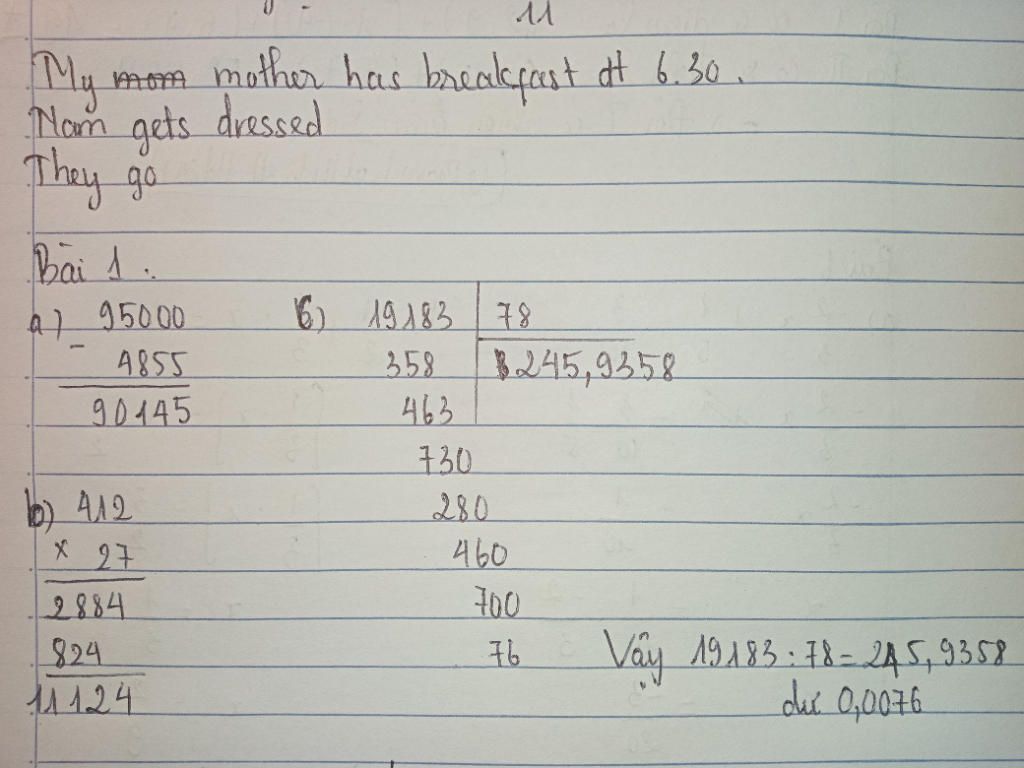 11
My mom mother has breakfast at 6.30.
Nam gets dressed
They go
Bài 1.
a) 95000
- 4855
90145
b) 412
x 27
2884
824
11124
c) 19183 78
358 245,9358
463
730
280
460
700
76
Vậy 19183 : 78 = 245,9358
dư 0,0076